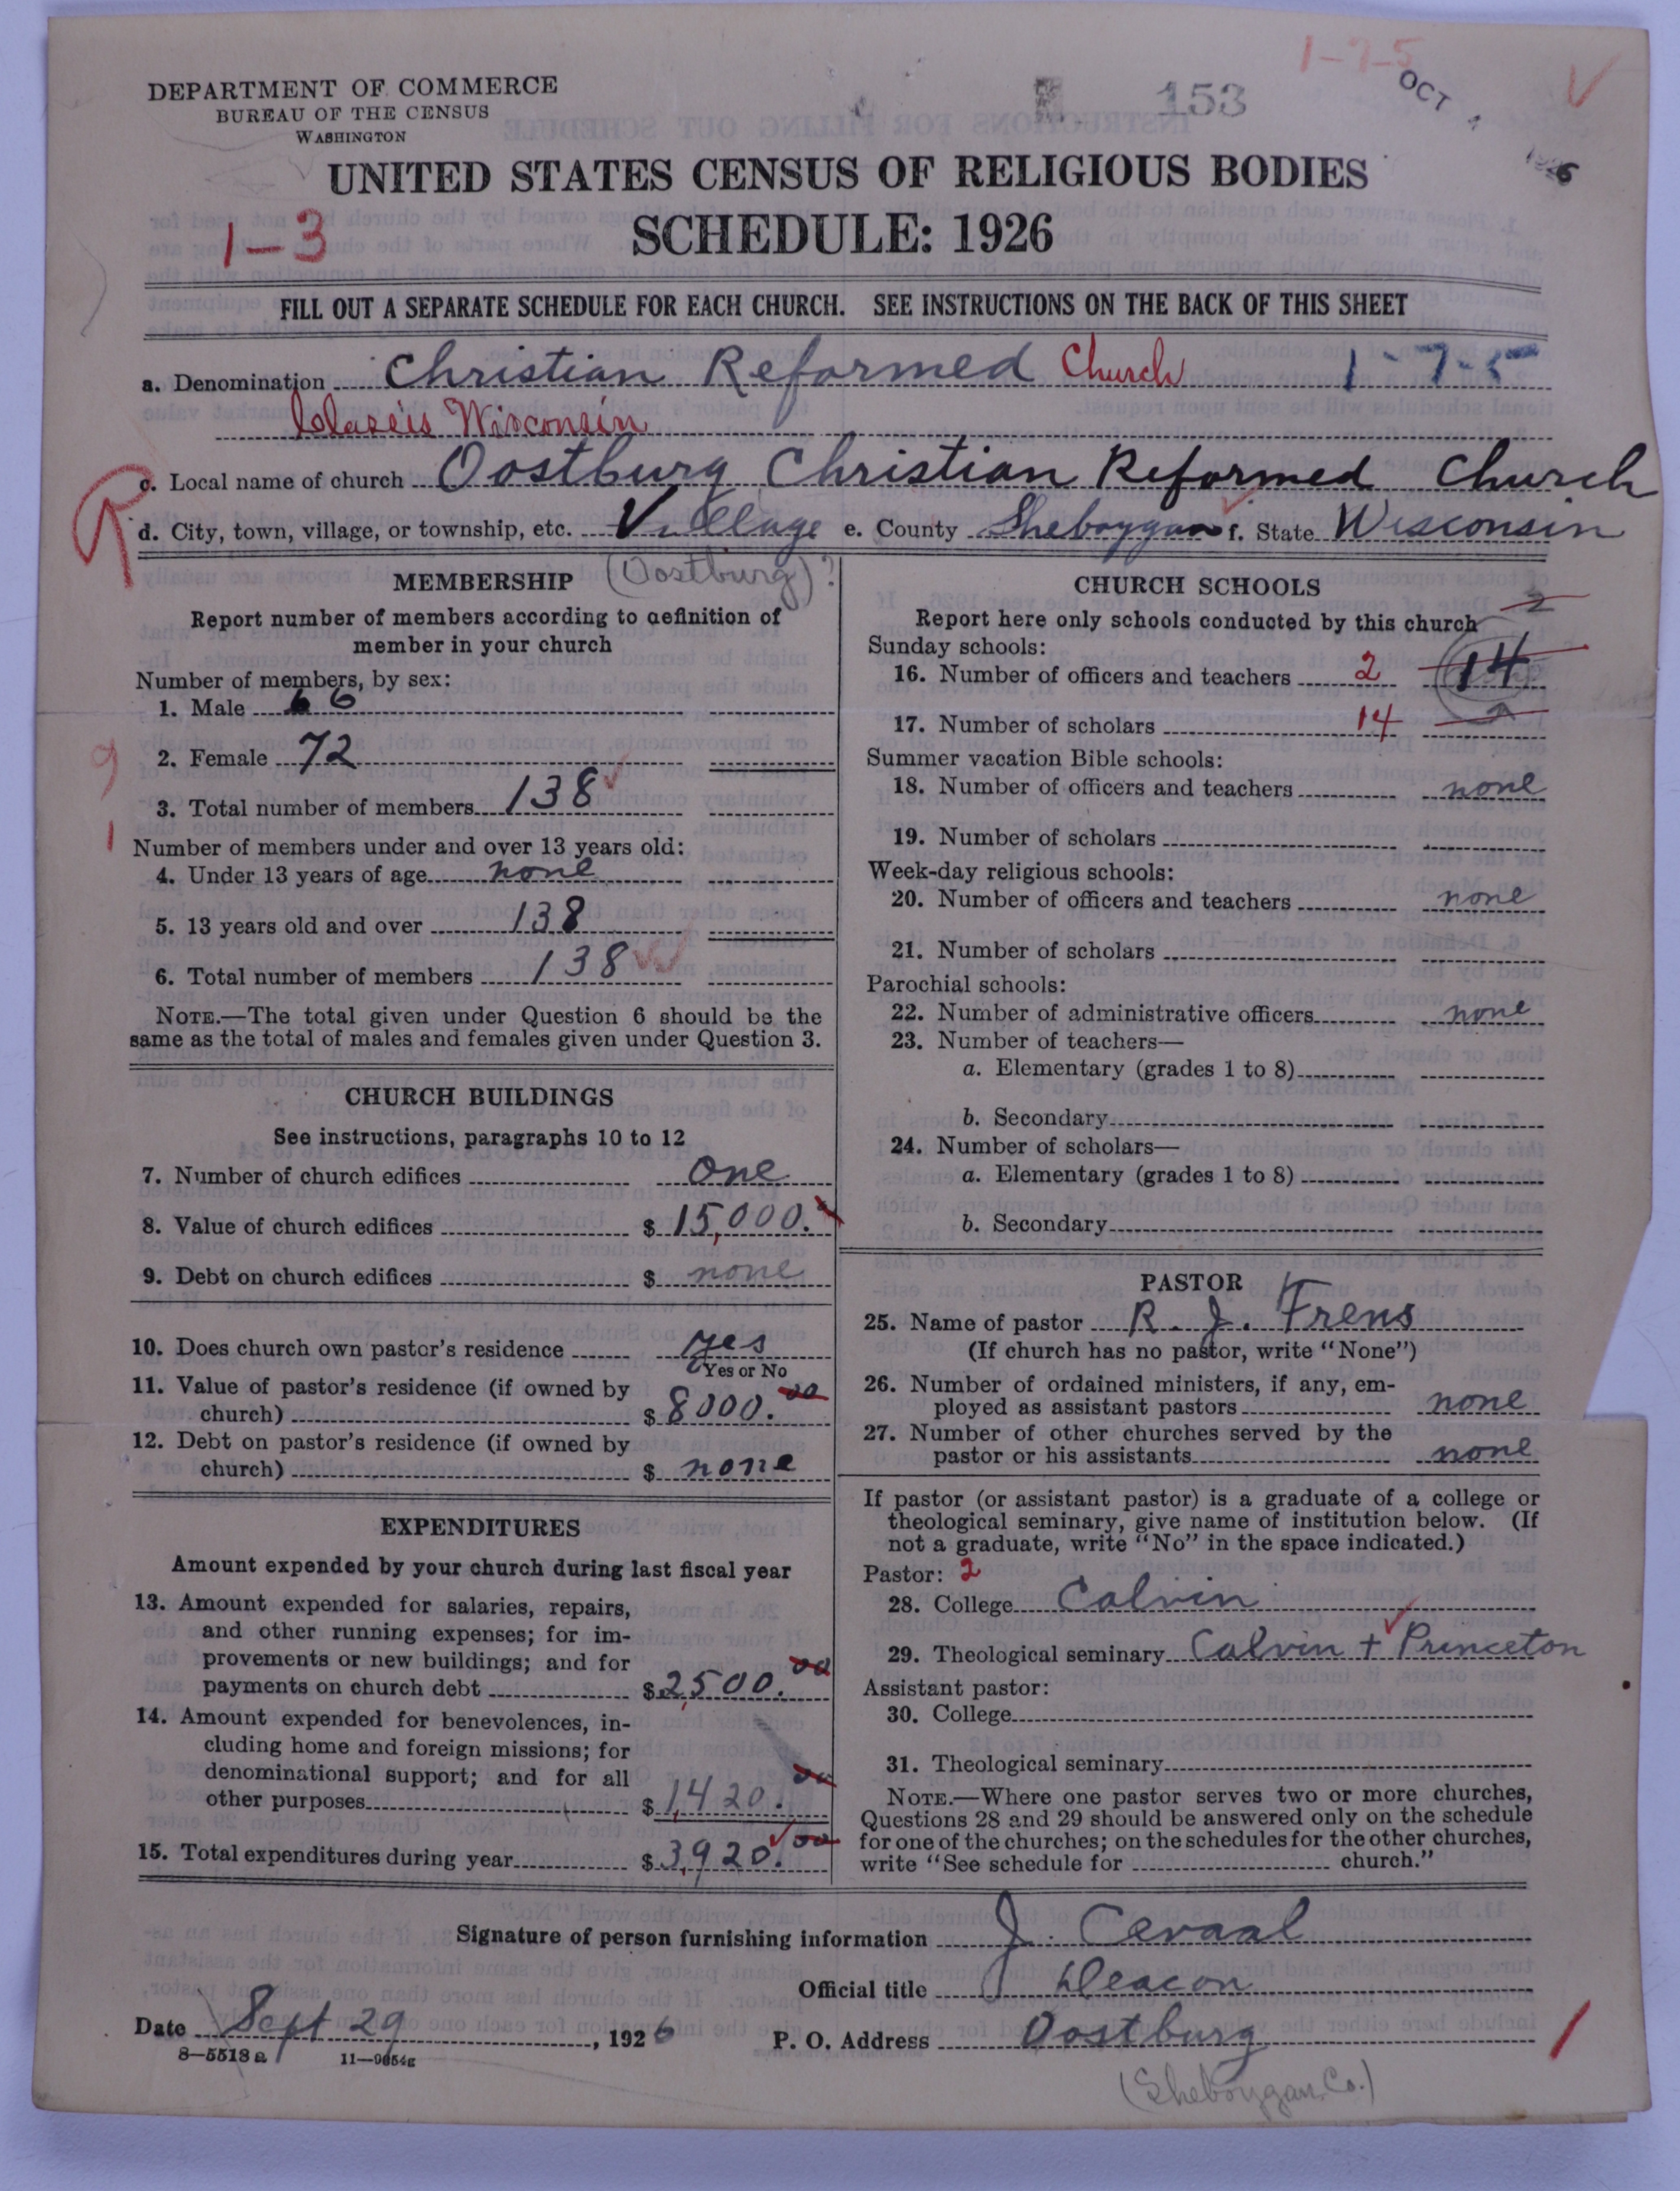 1-7-5
DEPARTMENT OF COMMERCE
BUREAU OF THE CENSUS
WASHINGTON
153
OCT
1926
UNITED STATES CENSUS OF RELIGIOUS BODIES
SCHEDULE: 1926
1-3
FILL OUT A SEPARATE SCHEDULE FOR EACH CHURCH. SEE INSTRUCTIONS ON THE BACK OF THIS SHEET
a. Denomination Christian Reformed Church 1-7-5
Classis Wisconsin
c. Local name of church Oostburg Christian Reformed Church
d. City, town, village, or township, etc. Village e. County Sheboygan f. State Wisconsin
(Oostburg)?
MEMBERSHIP
Report number of members according to definition of
member in your church
Number of members, by sex:
1. Male 66
2. Female 72
3. Total number of members 138
Number of members under and over 13 years old:
4. Under 13 years of age none
5. 13 years old and over 138
6. Total number of members 138
NOTE.—The total given under Question 6 should be the
same as the total of males and females given under Question 3.
CHURCH BUILDINGS
See instructions, paragraphs 10 to 12
7. Number of church edifices one
8. Value of church edifices $ 15,000.
9. Debt on church edifices $ none
10. Does church own pastor's residence yes
Yes or No
11. Value of pastor's residence (if owned by
church) $ 8000.00
12. Debt on pastor's residence (if owned by
church) $ none
EXPENDITURES
Amount expended by your church during last fiscal year
13. Amount expended for salaries, repairs,
and other running expenses; for im-
provements or new buildings; and for
payments on church debt $ 2,500.00
14. Amount expended for benevolences, in-
cluding home and foreign missions; for
denominational support; and for all
other purposes $ 1,420.00
15. Total expenditures during year $ 3,920.00
CHURCH SCHOOLS
Report here only schools conducted by this church
2
Sunday schools:
16. Number of officers and teachers 2 14
17. Number of scholars 14
Summer vacation Bible schools:
18. Number of officers and teachers none
19. Number of scholars
Week-day religious schools:
20. Number of officers and teachers none
21. Number of scholars
Parochial schools:
22. Number of administrative officers none
23. Number of teachers—
a. Elementary (grades 1 to 8)
b. Secondary
24. Number of scholars—
a. Elementary (grades 1 to 8)
b. Secondary
PASTOR
25. Name of pastor R. J. Frens
(If church has no pastor, write "None")
26. Number of ordained ministers, if any, em-
ployed as assistant pastors none
27. Number of other churches served by the
pastor or his assistants none
If pastor (or assistant pastor) is a graduate of a college or
theological seminary, give name of institution below. (If
not a graduate, write "No" in the space indicated.)
Pastor: 2
28. College Calvin
29. Theological seminary Calvin + Princeton
Assistant pastor:
30. College
31. Theological seminary
NOTE.—Where one pastor serves two or more churches,
Questions 28 and 29 should be answered only on the schedule
for one of the churches; on the schedules for the other churches,
write "See schedule for church."
Signature of person furnishing information J. Cevaal
Official title Deacon
Date Sept 29, 1926 P. O. Address Oostburg
8-5518 a 11-9654g
(Sheboygan Co.)